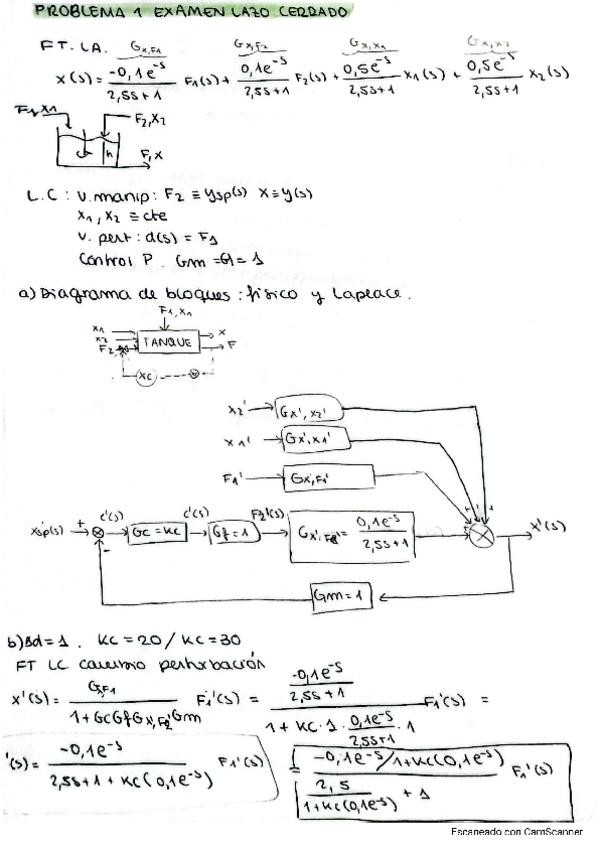 PROBLEMA 1 EXAMEN LAZO CERRADO
FT. LA. Gx,F1 Gx,F2 Gx,x1 Gx,x2
x(s) = -0,1e^-s / 2,5s+1 F1(s) + 0,1e^-s / 2,5s+1 F2(s) + 0,5e^-s / 2,5s+1 x1(s) + 0,5e^-s / 2,5s+1 x2(s)
F1,x1
F2,x2
h
F,x
L.C : v.manip: F2 ≡ ysp(s) x ≡ y(s)
x1, x2 ≡ cte
v. pert: d(s) = F1
Control P. Gm = Gf = 1
a) Diagrama de bloques : físico y Laplace.
F1, x1
x1
x2
F2
TANQUE
x
F
xc
x2' Gx',x2'
x1' Gx',x1'
F1' Gx,F1'
xsp'(s) + - e'(s) Gc = Kc c'(s) Gf = 1 F2'(s) Gx',F2' = 0,1e^-s / 2,5s+1 x'(s)
Gm = 1
b) Δd = 1 . Kc = 20 / Kc = 30
FT LC perturbación
x'(s) = Gx,F1 / 1 + Gc Gf Gx,F2' Gm F1'(s) = (-0,1e^-s / 2,5s+1) / (1 + Kc · 1 · 0,1e^-s / 2,5s+1 · 1) F1'(s) =
'(s) = -0,1e^-s / 2,5s+1 + Kc(0,1e^-s) F1'(s) = (-0,1e^-s / 1+Kc(0,1e^-s)) / (2,5 / 1+Kc(0,1e^-s) + 1) F1'(s)
Escaneado con CamScanner